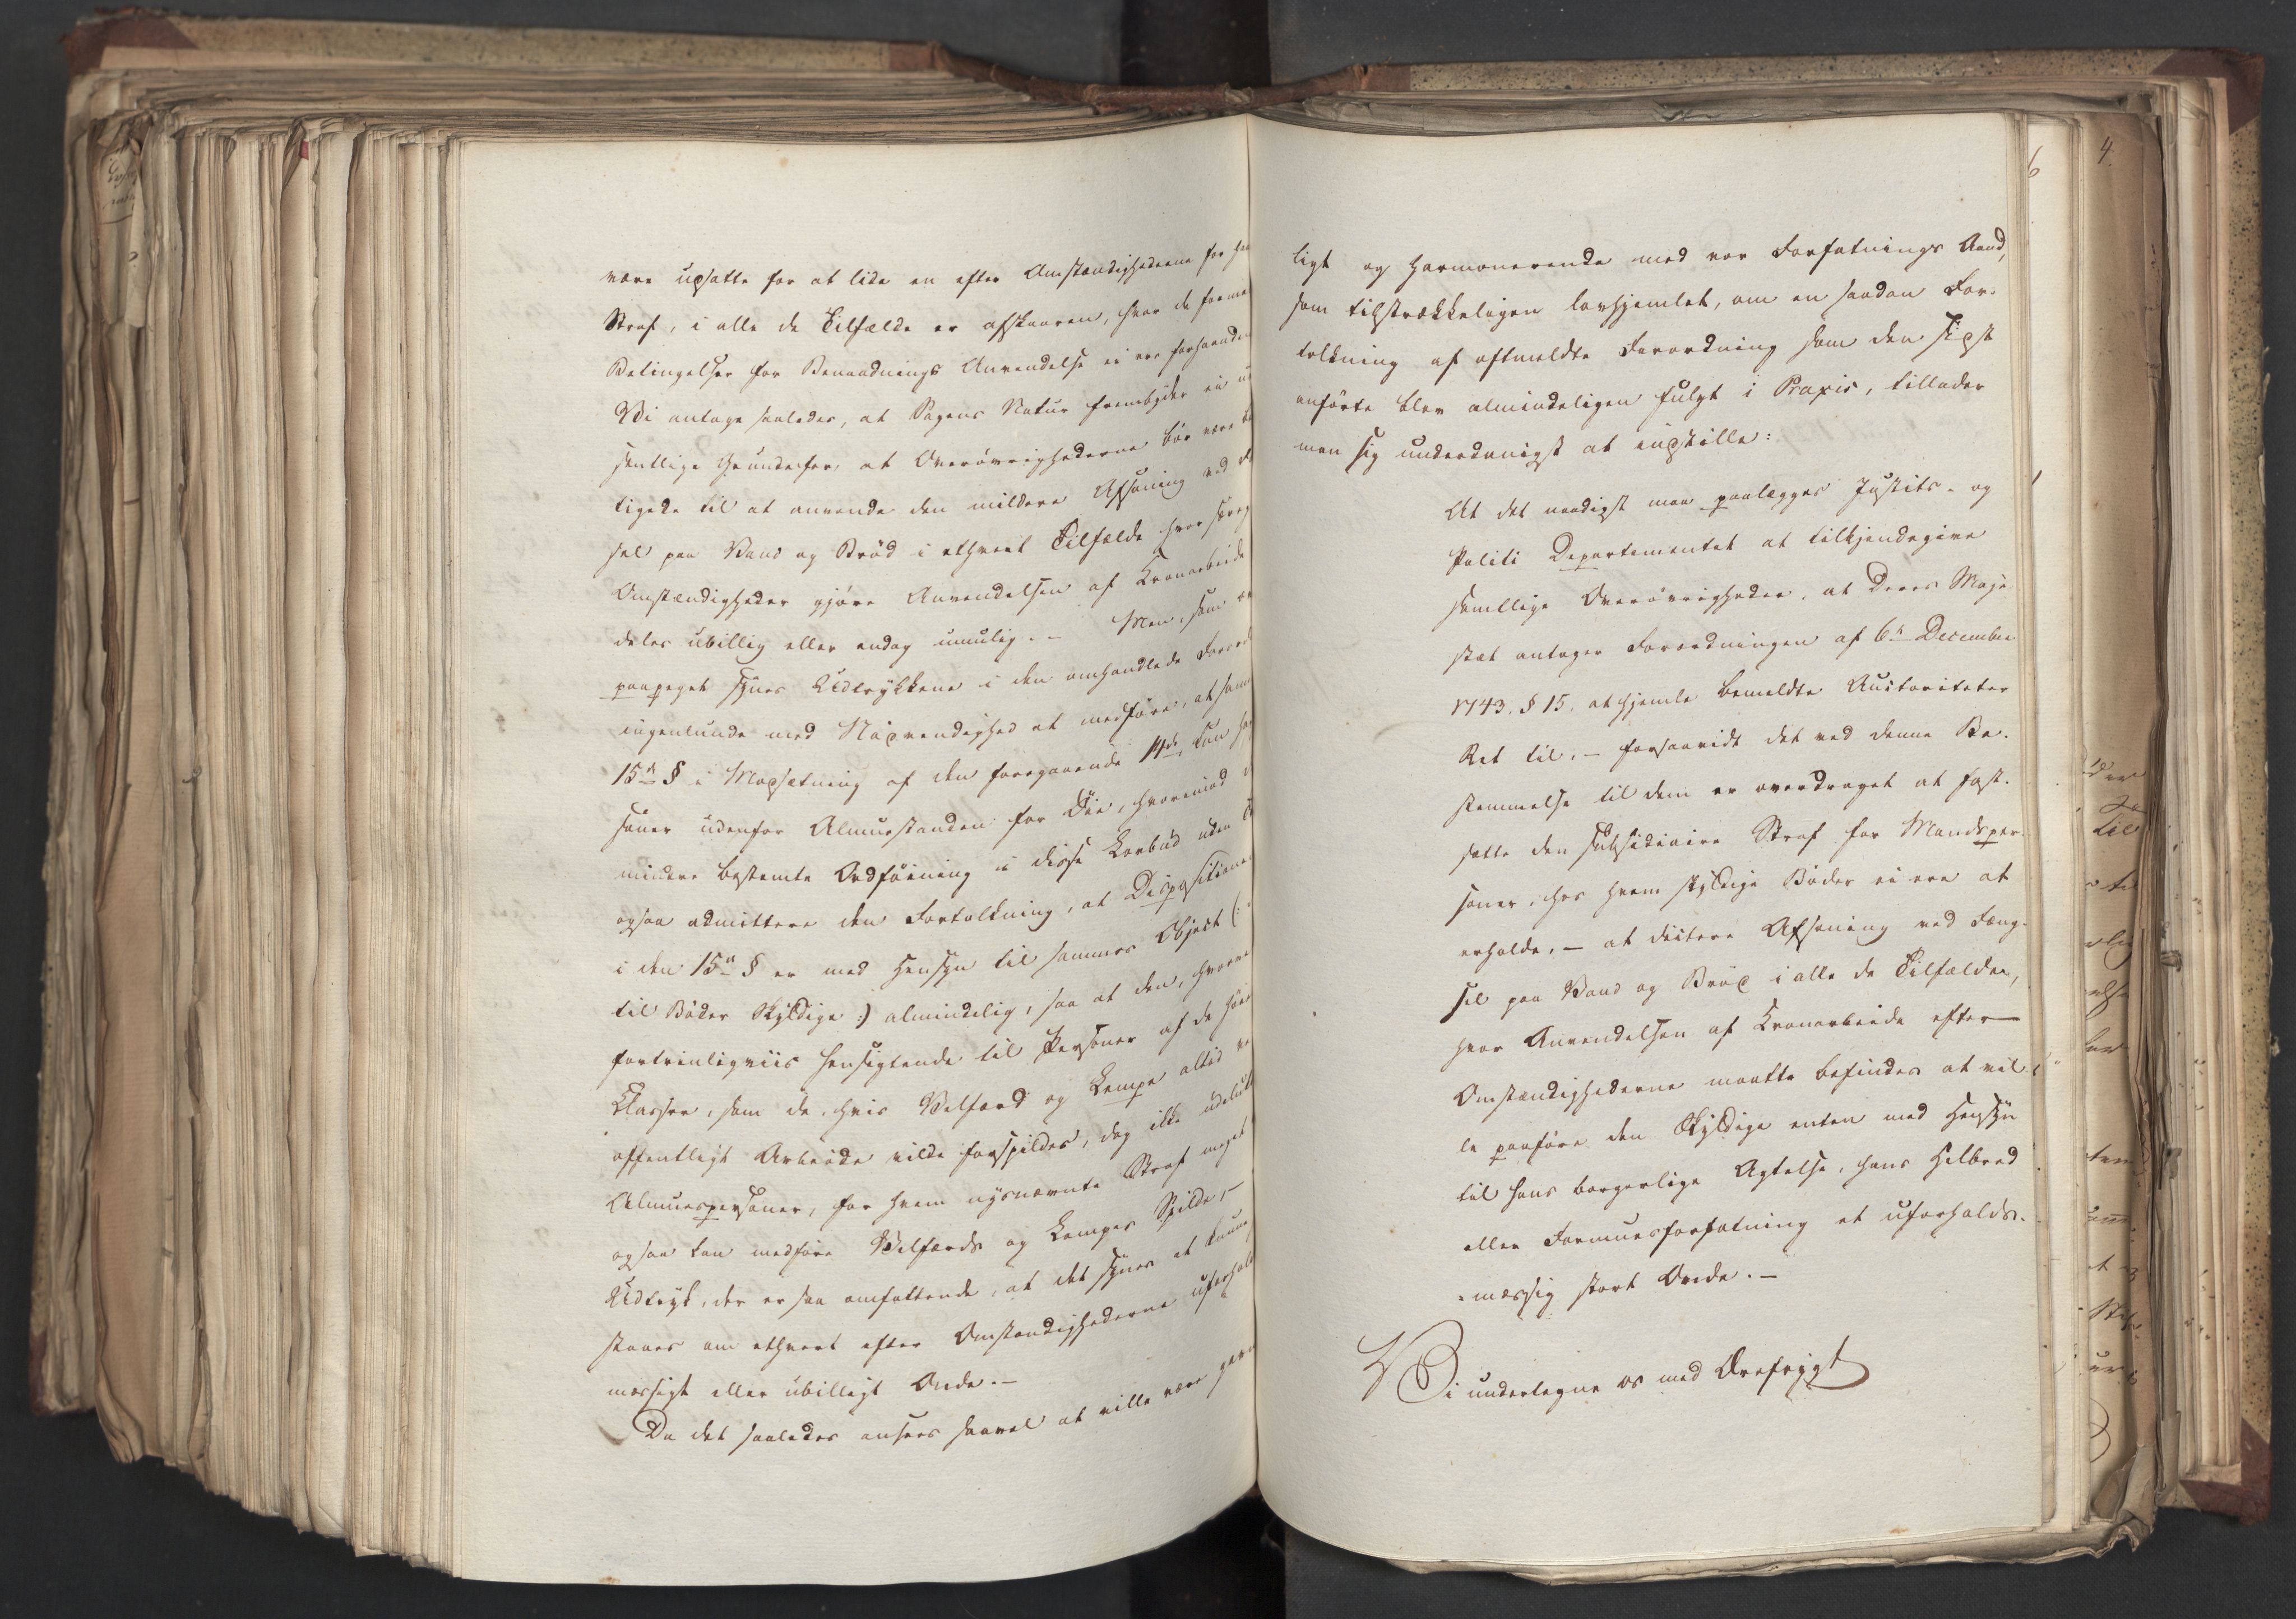 være udsatte for at lide en efter Omstændighederne for
Straf, i alle de Tilfælde er afskaaren, hvor de
Betingelser for Benaadnings Anvendelse ei ere forhaanden
Vi antage saaledes, at Sagens Natur frembyder
sentlige Grunde for, at Overøvrighederne bør være
tigede til at anvende den mildere Afsoning ved
sel paa Vand og Brød i ethvert Tilfælde hvor
Omstændigheder gjøre Anvendelsen af Kronarbeide
deles ubillig eller endog umulig. – Men, som
paapeget synes Udtrykkene i den omhandlede
ingenlunde med Nødvendighed at medføre, at
15de § i Modsætning af den foregaaende 14de, kun
soner udenfor Almuestanden for Øie, hvorimod
mindre bestemte Ordføining i disse Lovbud uden
ogsaa admittere den Fortolkning, at Dispositionen
i den 15de § er med Hensyn til sammes Object (:
til Bøder Skyldige :) almindelig, saa at den,
fortrinligviis hensigtende til Personer af de
Classer, som de, hvis Velfærd og Lempe altid
offentligt Arbeide vilde forspildes, dog ikke
Almuespersoner, for hvem nysnævnte Straf meget
ogsaa kan medføre Velfærds og Lempes Spilde, –
Udtryk, der er saa omfattende, at det synes at kunne
staaes om ethvert efter Omstændighederne
mæssigt eller ubilligt Onde. –
Da det saaledes ansees saavel at ville være
ligt og harmonerende med vor Forfatnings Aand,
som tilstrækkeligen lovhjemlet, om en saadan For-
tolkning af oftmeldte Forordning som den sidst
anførte blev almindeligen fulgt i Praxis, tillader
man sig underdanigst at indstille:
At det naadigst maa paalægges Justits- og
Politi Departementet at tilkjendegive
samtlige Overøvrigheder, at Deres Maje-
stæt antager Forordningen af 6te December
1743. § 15. at hjemle bemeldte Auctoriteter
Ret til, – forsaavidt det ved denne Be-
stemmelse til dem er overdraget at fast-
sætte den subsidiaire Straf for Mandsper-
soner, hos hvem skyldige Bøder ei ere at
erholde, – at dictere Afsoning ved Fæng-
sel paa Vand og Brød i alle de Tilfælde,
hvor Anvendelsen af Kronarbeide efter
Omstændighederne maatte befindes at vil-
le paaføre den Skyldige enten med Hensyn
til hans borgerlige Agtelse, hans Helbred
eller Formuesforfatning et uforholds-
-mæssig stort Onde. –
Vi undertegne os med Ærefrygt